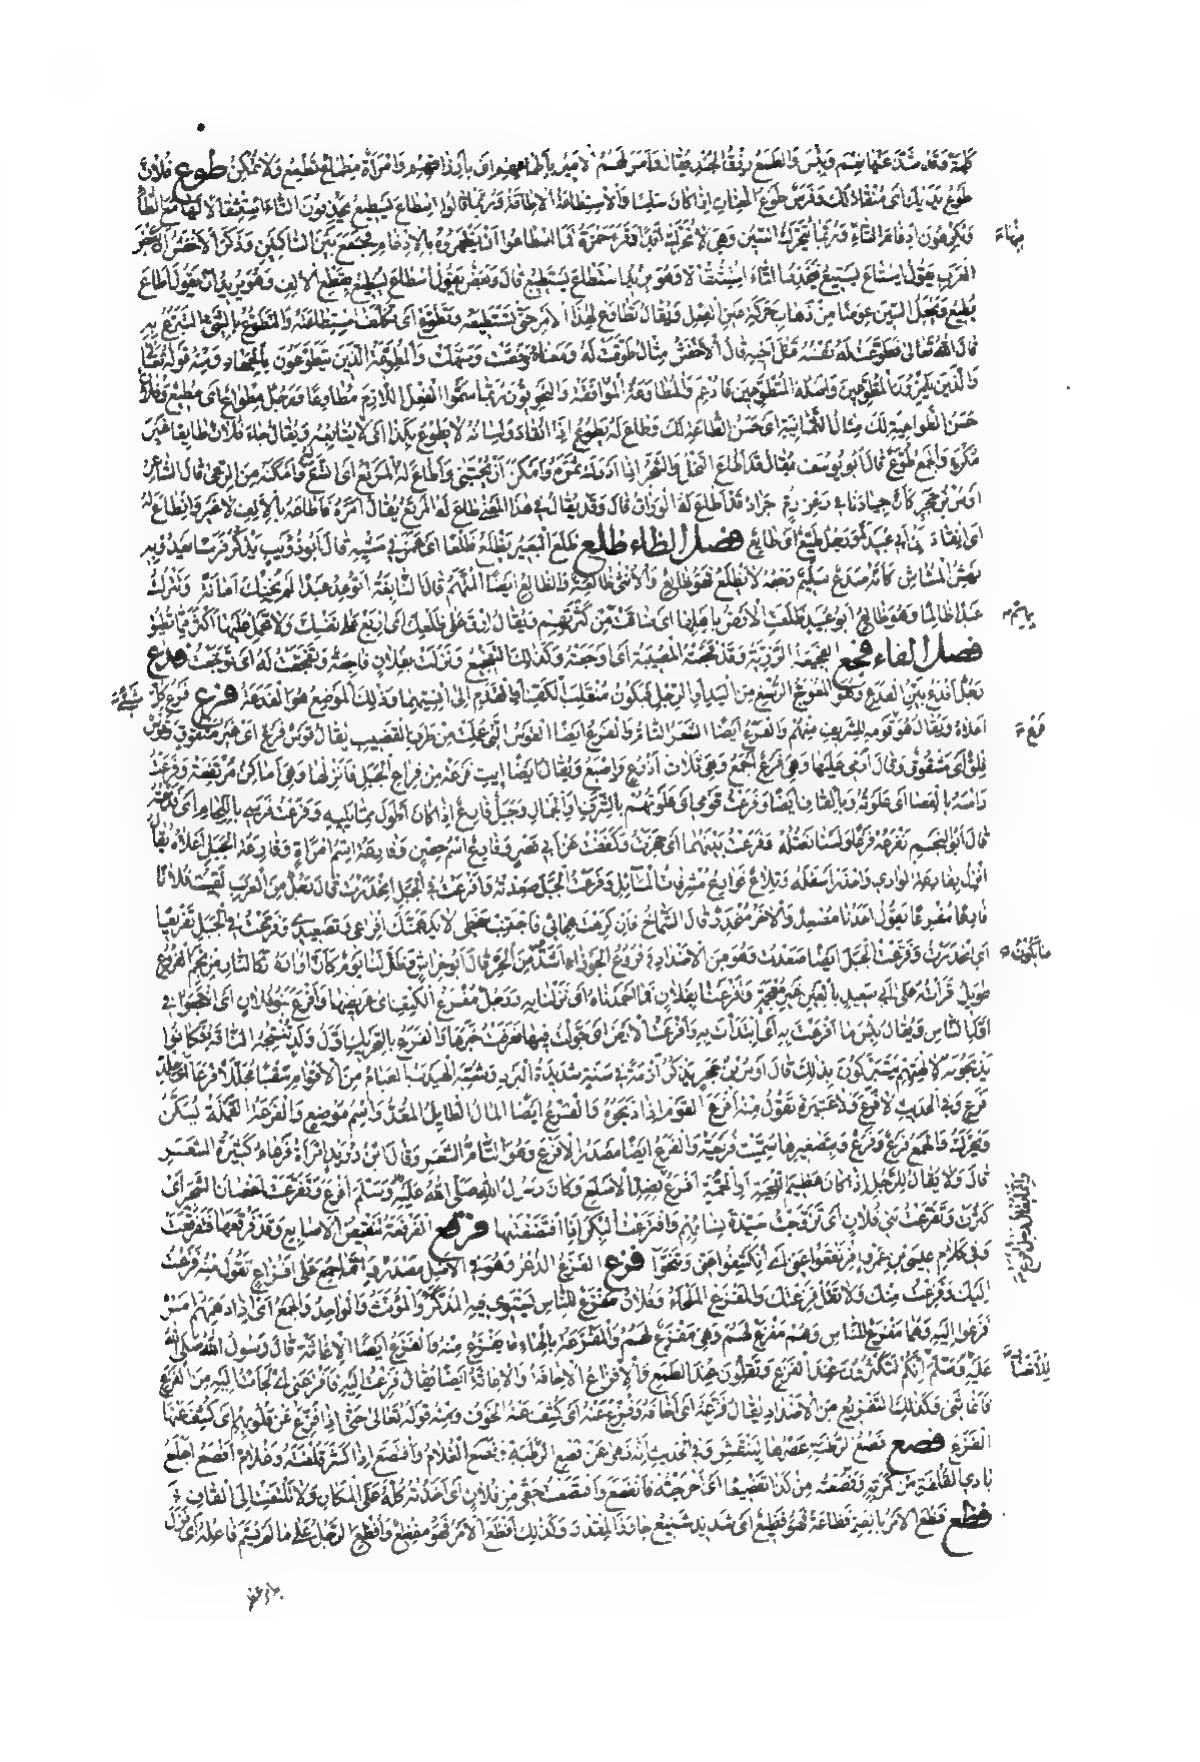 كلمة وقد شذ عنها شيء وليس والطبع رفقا الجند يقال وامر لهم الامير باطماعهم اي بارزاقهم وامرأة مطماع تطمع ولا تمكن طوع فلان
طوع يديك اي منقاد لك وفرس طوع العنان اذا كان سلسا والاستطاعة الاطاقة وربما قالوا اسطاع يسطيع يحذفون التاء استثقالا لها مع الطاء
ويكرهون ادغام التاء فيها فتحرك السين وهي لا تحرك ابدا وقرأ حمزة فما اسطاعوا ان يظهروه بالادغام فجمع بين الساكنين وذكر الاخفش ان بعض
العرب يقول استاع يستيع فيحذف الطاء استثقالا وهو يريد استطاع يستطيع قال وبعض يقول اسطاع يسطيع بقطع الالف وهو يريد ان يقول اطاع
يطيع ويجعل السين عوضا من ذهاب حركة عين الفعل ويقال تطاوع لهذا الامر حتى تستطيعه وتطوع اي تكلف استطاعته والتطوع بالشيء التبرع به
قال الله تعالى فطوعت له نفسه قتل اخيه قال الاخفش مثال طوقت له ومعناه رخصت وسهلت والمطوعة الذين يتطوعون بالجهاد ومنه قوله تعالى
والذين يلمزون المطوعين واصله المتطوعين فادغم والمطاوعة الموافقة والنحويون ربما سموا الفعل اللازم مطاوعا ورجل مطواع اي مطيع وفلان
حسن الطواعية لك مثال الثمانية اي حسن الطاعة لك وطاع له يطوع اذا انقاد ولسانه لا يطوع بكذا اي لا يتابعه ويقال جاء فلان طايعا غير
مكره والجمع طوع قال ابو يوسف يقال قد اطاع النخل والشجر اذا ادرك ثمره وامكن ان يجتنى واطاع له المرتع اي اتسع وامكنه من الرعي قال الشاعر
اوس بن حجر كان جيادنا في رعن زم جراد قد اطاع له الوراق قال وقد يقال في هذا المعنى طاع له المرتع يقال امره فاطاعه بالالف لا غير وانطاع له
اي انقاد عن ابي عبيد ورجل طيع اي طائع فصل الظاء ظلع ظلع البعير يظلع ظلعا اي غمز في مشيه قال ابو ذؤيب يذكر فرسا يعدو به
نهش المشاش كأنه صدع سليم رجعه لا يظلع فهو ظالع والانثى ظالعة والظالع ايضا المتهم قال النابغة اتوعد عبدا لم يخنك امانة وتترك
عبدا ظالما وهو ظالع ابو عبيد ظلعت الارض باهلها اي ضاقت من كثرتهم ويقال ارق على ظلعك اي اربع على نفسك ولا تحمل عليها اكثر مما تطيق
فصل الفاء فجع الفجيعة الرزية وقد فجعته المصيبة اي اوجعته وكذلك التفجيع ونزلت بفلان فاجعة وتفجعت له اي توجعت فدع
رجل افدع بين الفدع وهو المعوج الرسغ من اليد او الرجل فيكون منقلب الكف او القدم الى انسيهما وذلك الموضع هو الفدعة فرع فرع كل
اعلاه ويقال هو فرع قومه للشريف منهم والفرع ايضا الشعر التام والفرع ايضا القوس التي عملت من طرف القضيب يقال قوس فرع اي غير مشقوق وقوس
فلق اي مشقوق وقال ارمي عليها وهي فرع اجمع وهي ثلاث اذرع واصبع ويقال ايضا ايت فرعة من فراع الجبل فانزلها وهي اماكن مرتفعة وفرعت
رأسه بالعصا اي علوته وبالقاف ايضا وفرعت قومي اي علوتهم بالشرف او الجمال وجبل فارع اذا كان اطول مما يليه وفرعت فرسي باللجام اي قدعته
قال ابو النجم نفرعه فرعا ولسنا نعتله وفرعت بينهما اي حجزت وكففت عن ابي نصر وفارع اسم حصن وفارعة اسم امرأة وفارعة الجبل اعلاه يقال
انزل بفارعة الوادي واحذر اسفله وتلاع فوارع مشرفات المسايل وفرعت الجبل صعدته وافرعت في الجبل انحدرت قال رجل من العرب لقيت فلانا
فارعا مفرعا يقول احدنا مصعد والاخر منحدر وقال الشماخ فان كرهت هجائي فاجتنب سخطي لا يدهمنك افراعي وتصعيدي وفرعت في الجبل تفريعا
اي انحدرت وفرعت الجبل ايضا صعدت وهو من الاضداد وفروع الجوزاء اشد من الحر قال ابو خراش وظل لنا يوم كأن اواره ذكا النار من نجم الفروع
طويل
اقذاء الناس ويقال بئس ما افرعت به اي ابتدأت به وافرعنا الارض اي جولت فيها فعرفت خبرها والفرع بالتحريك اول ولد تنتجه الناقة وكانوا
يذبحونه لالهتهم يتبركون بذلك قال اوس بن حجر يذكر ازمة في سنة شديدة البرد وشبه الهيدب العبام من الاقوام سقبا مجللا فرعا
فرع وفي الحديث لا فرع ولا عتيرة تقول منه افرع القوم اذا ذبحوه والفرع ايضا المال الطائل المعد واسم موضع والفرعة القملة تسكن
وتحرك والجمع فرع وفرع وبتصغيرها سميت فريعة والفرع ايضا مصدر الافرع وهو التام الشعر وقال ابن دريد امرأة فرعاء كثيرة الشعر
قال ولا يقال للرجل اذا كان عظيم اللحية او الجمة افرع ضد الاصلع وكان رسول الله صلى الله عليه وسلم افرع وتفرعت اغصان الشجر اي
كثرت وتفرعت بني فلان اي تزوجت سيدة نسائهم وافترعت البكر اذا افتضضتها فرقع الفرقعة تنقيض الاصابع وقد فرقعها فتفرقعت
وفي كلام عيسى بن عمر افرنقعوا عني اي انكشفوا عني وتنحوا فزع الفزع الذعر وهو في الاصل مصدر وربما جمع على افزاع تقول منه فزعت
اليك وفزعت منك ولا تقل فزعتك والمفزع الملجأ وفلان مفزع للناس يستوي فيه المذكر والمؤنث والواحد والجمع اي اذا دهمهم امر
فزعوا اليه وهما مفزع للناس وهم مفزع لهم وهي مفزع لهم والمفزعة بالهاء ما يفزع منه والفزع ايضا الاغاثة قال رسول الله صلى الله
عليه وسلم انكم لتكثرون عند الفزع وتقلون عند الطمع والافزاع الاخافة والاغاثة ايضا يقال فزعت اليه فافزعني اي لجأت اليه من الفزع
فاغاثني وكذلك التفزيع من الاضداد يقال فزعه اي اخافه وفزع عنه اي كشف عنه الخوف ومنه قوله تعالى حتى اذا فزع عن قلوبهم اي كشف عنها
الفزع فصع فصع الرطبة عصرها لينقشر وفي الحديث انه نهى عن فصع الرطبة وفصع الغلام وافتصع اذا كشر قلفته وغلام افصع اجلع
بادي القلفة من كمرته وفصعته من كذا تفصيعا اي اخرجته فانفصع وافتصعت حقي من فلان اي اخذته كله على المكان ولا تلتفت الى القاف
فظع فظع الامر بالضم فظاعة فهو فظيع اي شديد شنيع جاوز المقدار وكذلك افظع الامر فهو مفظع وافظع الرجل على ما لم يسم فاعله اي نزل